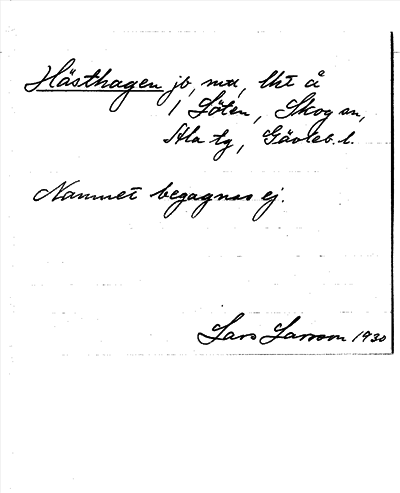 Hästhagen jb, mu, lht å
1 Löten, Skog sn,
Ala tg, Gävleb. l.
Namnet begagnas ej.
Lars Larsson 1930